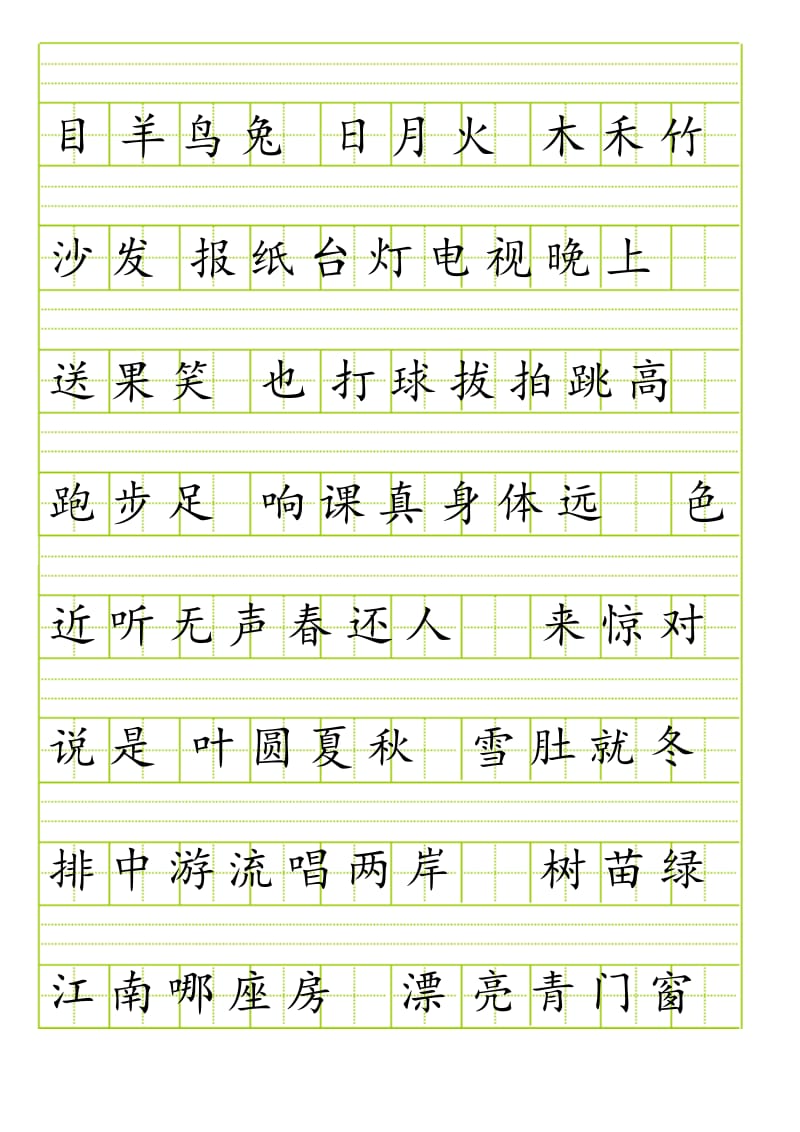 目 羊 鸟 兔 日 月 火 木 禾 竹
沙 发 报 纸 台 灯 电 视 晚 上
送 果 笑 也 打 球 拔 拍 跳 高
跑 步 足 响 课 真 身 体 远 色
近 听 无 声 春 还 人 来 惊 对
说 是 叶 圆 夏 秋 雪 肚 就 冬
排 中 游 流 唱 两 岸 树 苗 绿
江 南 哪 座 房 漂 亮 青 门 窗